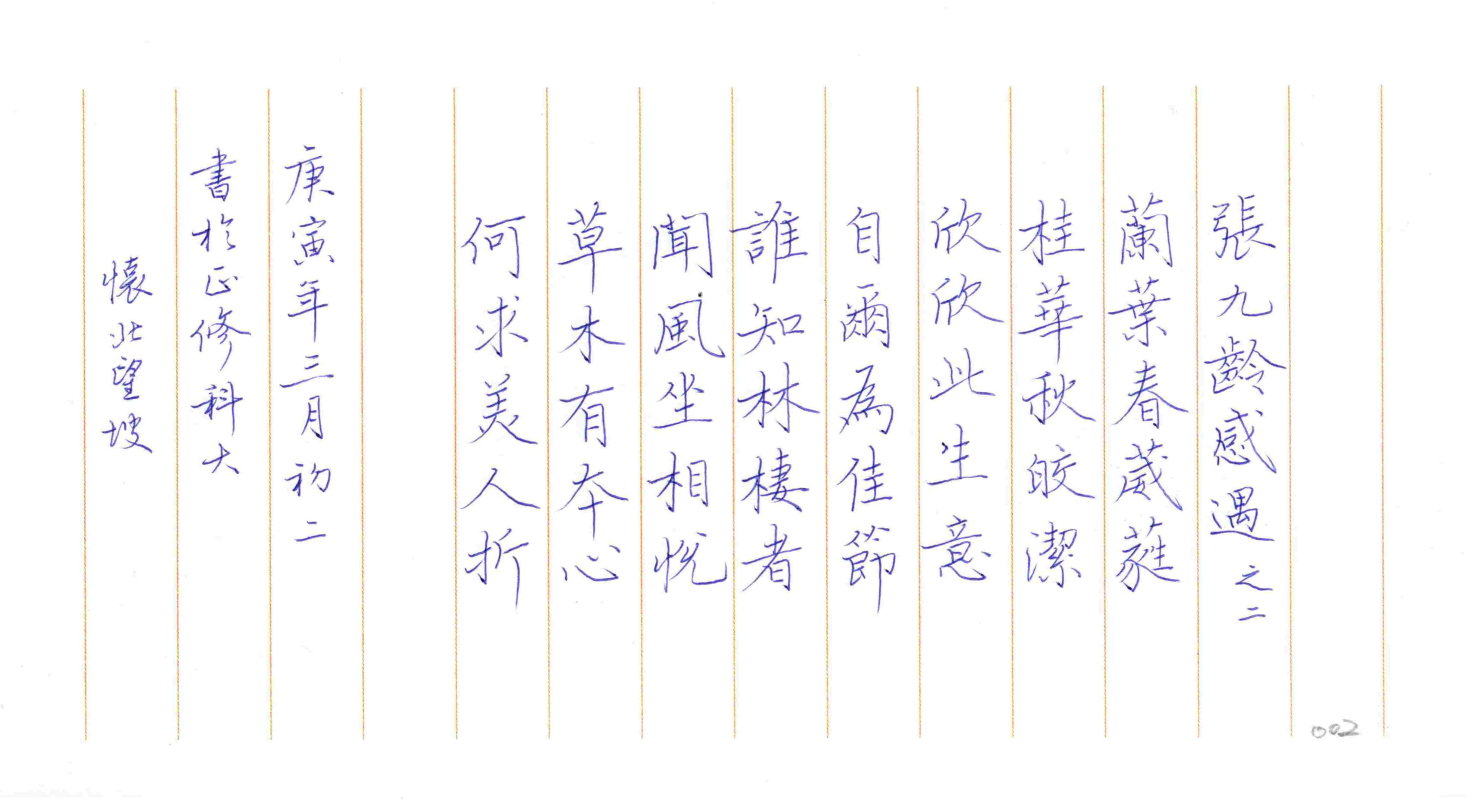 張九齡感遇之二
蘭葉春葳蕤
桂華秋皎潔
欣欣此生意
自爾為佳節
誰知林棲者
聞風坐相悅
草木有本心
何求美人折
庚寅年三月初二
書於正修科大
懷北望坡
002